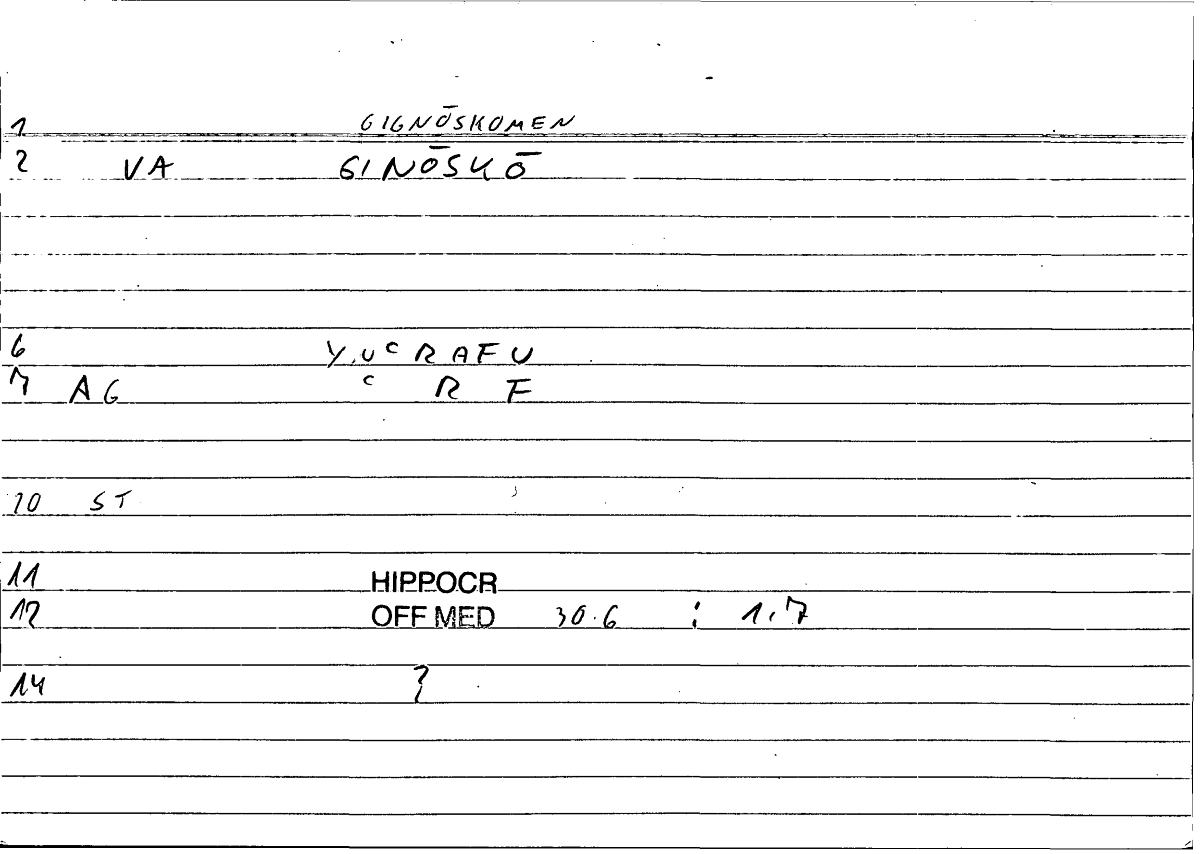 1 GIGNŌSKOMEN
2 VA GINŌSKŌ
6 Y,U C R A F U
7 AG C R F
10 ST
11 HIPPOCR
12 OFF MED 30.6 : 1,7
14 ?